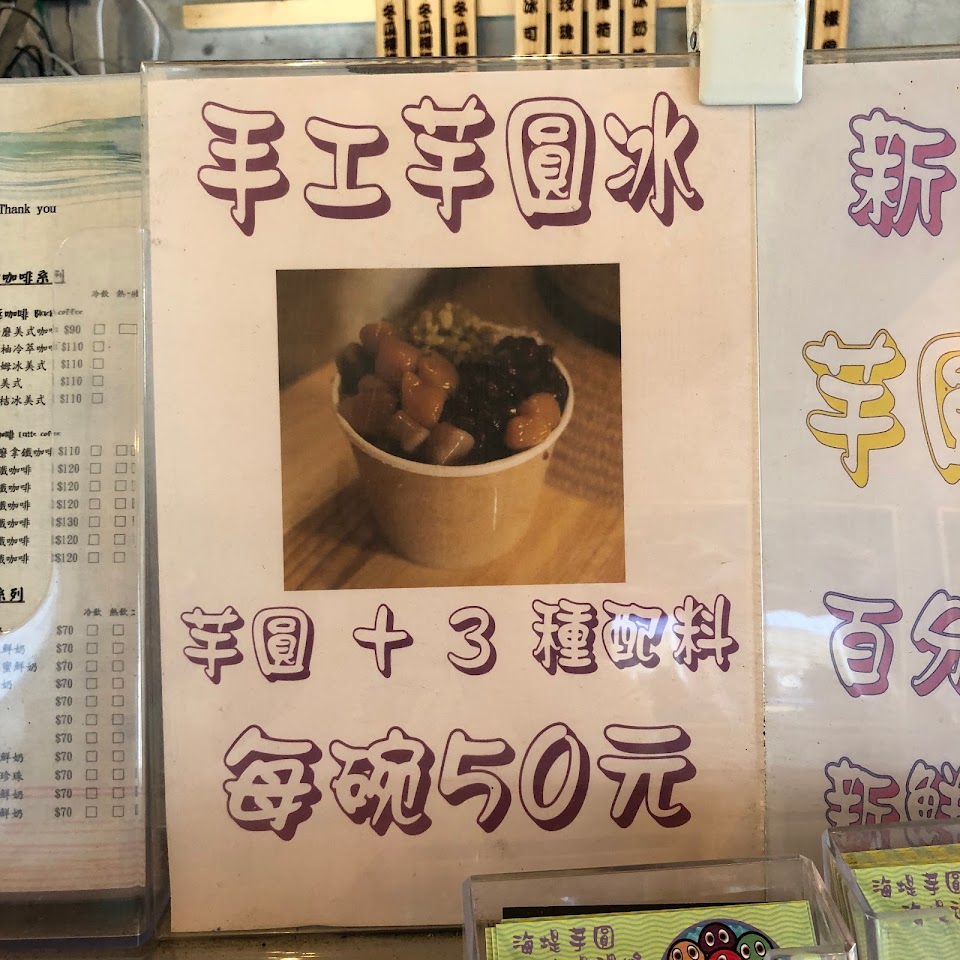 手工芋圓冰
芋圓 + 3 種配料
每碗50元
Thank you
咖啡系列
冷飲
咖啡 Black coffee
磨美式咖 $90
柚冷萃咖 $110
姆冰美式 $110
美式 $110
桔冰美式 $110
Latte
磨拿鐵咖啡 $110
鐵咖啡 $120
鐵咖啡 $120
鐵咖啡 $120
鐵咖啡 $130
鐵咖啡 $120
鐵咖啡 $120
系列
冷飲 熱飲
$70
鮮奶 $70
蜜鮮奶 $70
奶 $70
$70
$70
$70
鮮奶 $70
珍珠 $70
鮮奶 $70
鮮奶 $70
冬瓜檸
冬瓜檸
冰
可
玫瑰
冰奶
新
芋圓
百分
新鮮
海堤芋圓
海堤芋圓